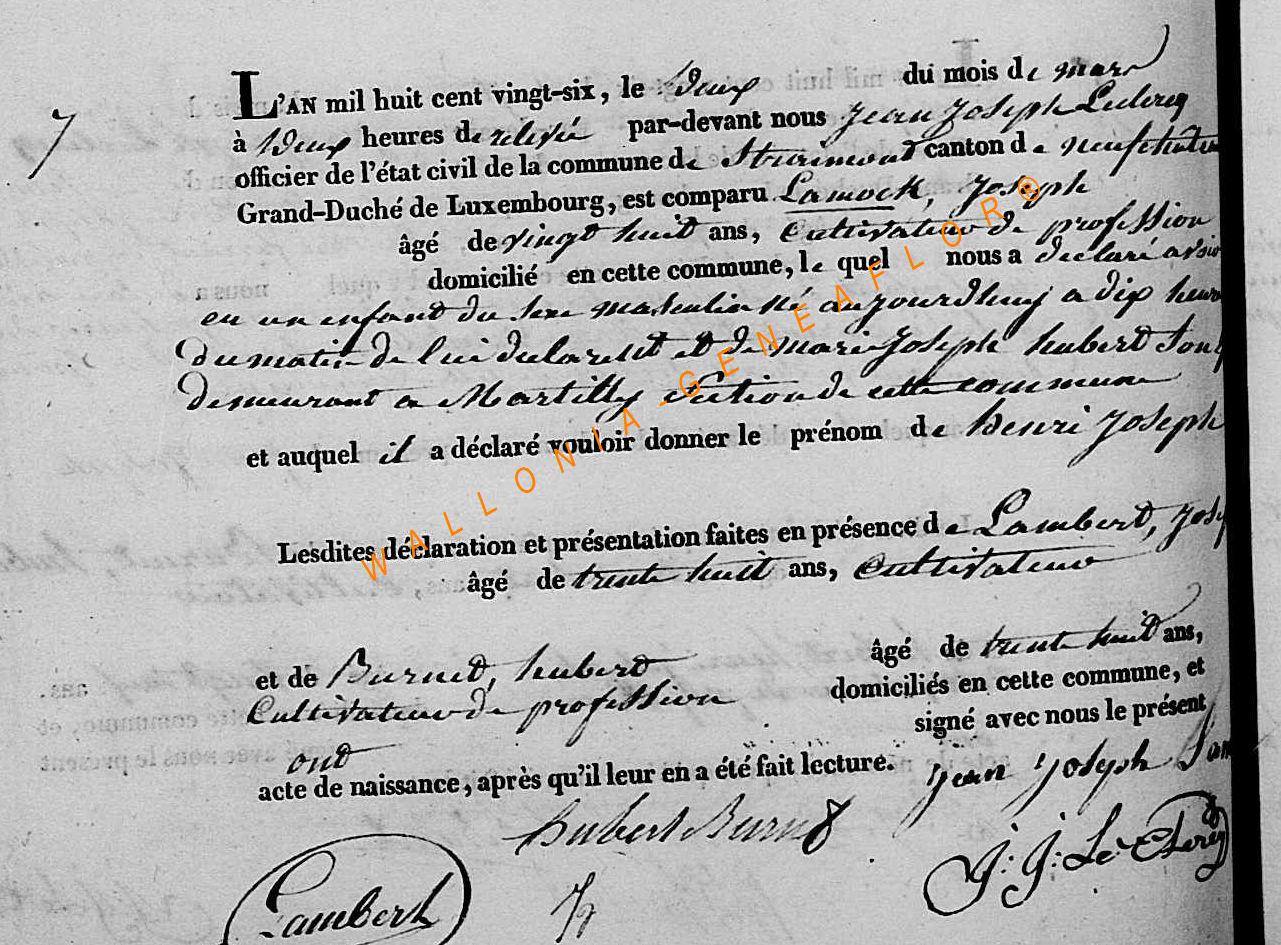 7
L'AN mil huit cent vingt-six, le deux du mois de mars
à deux heures de relevée par-devant nous Jean Joseph Leclercq
officier de l'état civil de la commune de Straimont canton de neufchateau
Grand-Duché de Luxembourg, est comparu Lamock, Joseph
âgé de vingt huit ans, Cultivateur de profession
domicilié en cette commune, le quel nous a déclaré avoir
eu un enfant du sexe masculin né aujourdhuy a dix heures
du matin de lui déclarent et de marie Joseph hubert
demeurant a Martilly section de cette commune
et auquel il a déclaré vouloir donner le prénom de henri Joseph
Lesdites déclaration et présentation faites en présence de Lambert,
âgé de trente huit ans, Cultivateur
et de Burnet, hubert âgé de trente huit ans,
Cultivateur de profession domiciliés en cette commune, et
ont signé avec nous le présent
acte de naissance, après qu'il leur en a été fait lecture.
Jean Joseph
hubert Burnet
J: J: Le Clercq
Lambert
WALLONIA-GENEAFLOR®